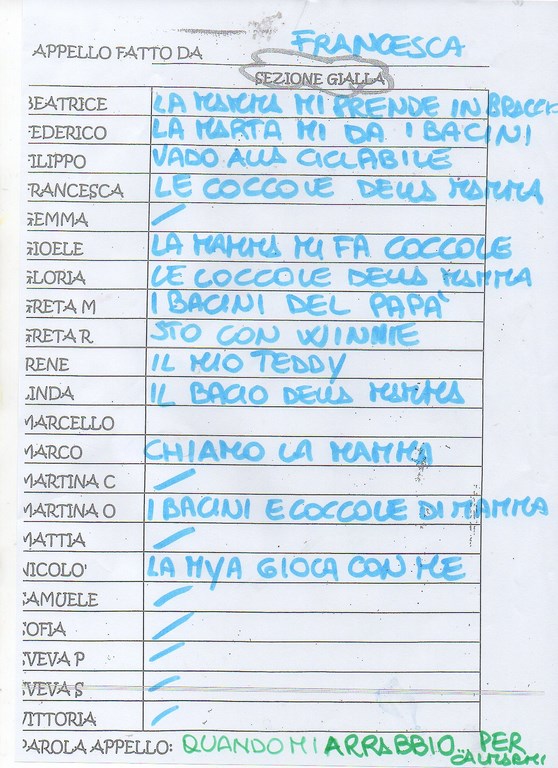 APPELLO FATTO DA FRANCESCA
SEZIONE GIALLA
BEATRICE LA MAMMA MI PRENDE IN BRACCIO
FEDERICO LA MARTA MI DA I BACINI
FILIPPO VADO ALLA CICLABILE
FRANCESCA LE COCCOLE DELLA MAMMA
GEMMA /
GIOELE LA MAMMA MI FA COCCOLE
GLORIA LE COCCOLE DELLA MAMMA
GRETA M I BACINI DEL PAPA'
GRETA R STO CON WINNIE
IRENE IL MIO TEDDY
LINDA IL BACIO DELLA MAMMA
MARCELLO
MARCO CHIAMO LA MAMMA
MARTINA C /
MARTINA O I BACINI E COCCOLE DI MAMMA
MATTIA /
NICOLO' LA MYA GIOCA CON ME
SAMUELE /
SOFIA /
SVEVA P /
SVEVA S /
VITTORIA /
PAROLA APPELLO: QUANDO MI ARRABBIO.. PER CALMARMI